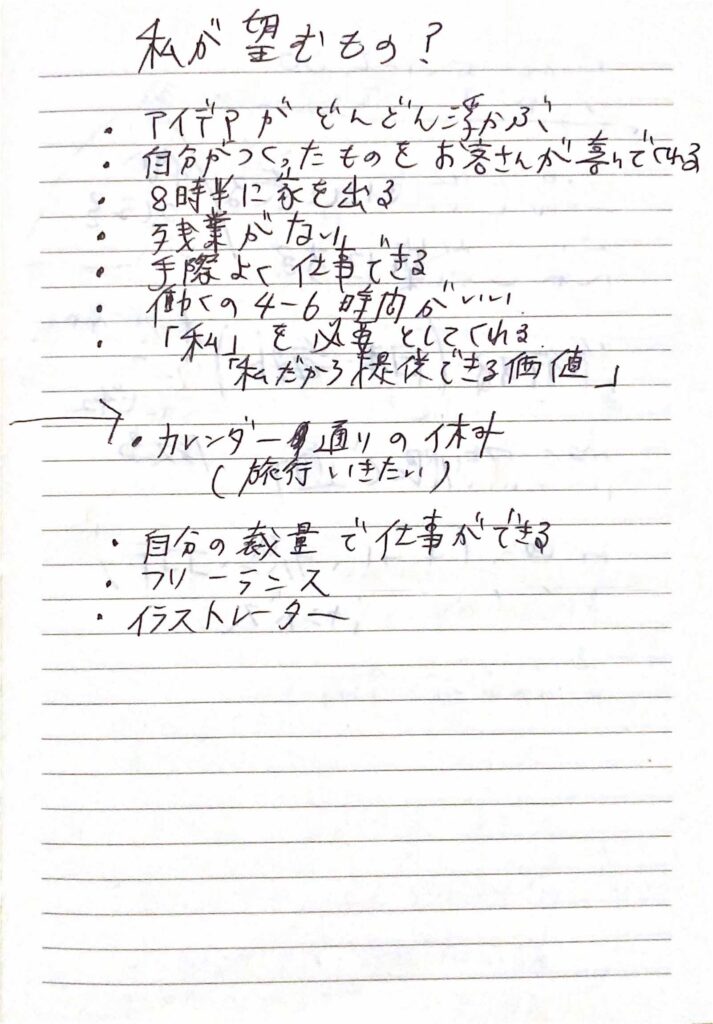 私が望むもの?
・アイデアがどんどん浮かぶ
・自分がつくったものをお客さんが喜んでくれる
・8時半に家を出る
・残業がない
・手際よく仕事できる
・働くの4-6時間がいい
・「私」を必要としてくれる
「私だから提供できる価値」
・カレンダー通りの休み
(旅行いきたい)
・自分の裁量で仕事ができる
・フリーランス
・イラストレーター